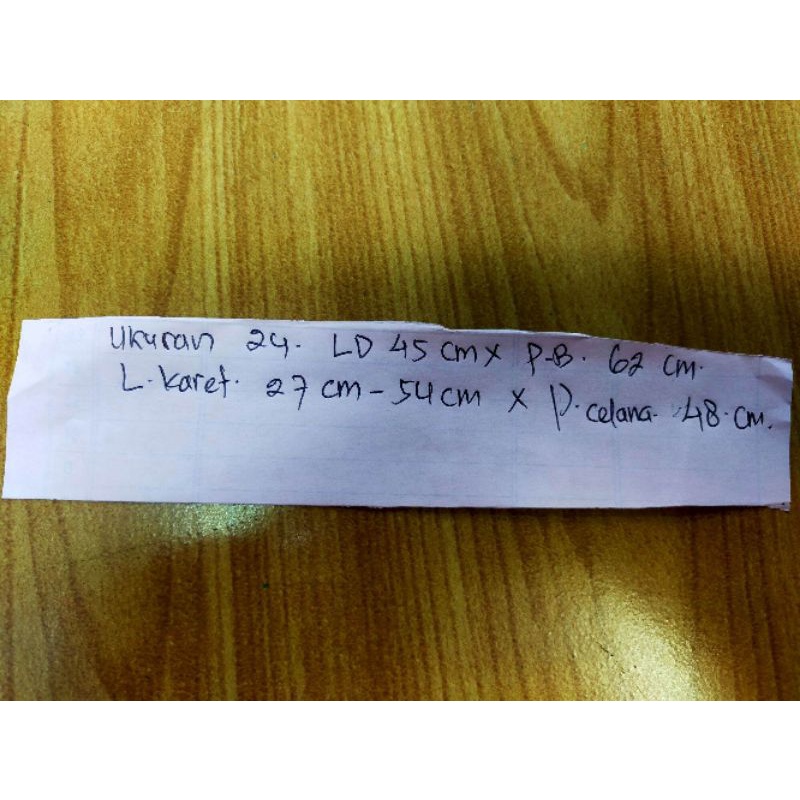 Ukuran 24. LD 45 cm x P.B. 62 cm.
L.Karet. 27 cm - 54 cm x P.celana. 48.cm.